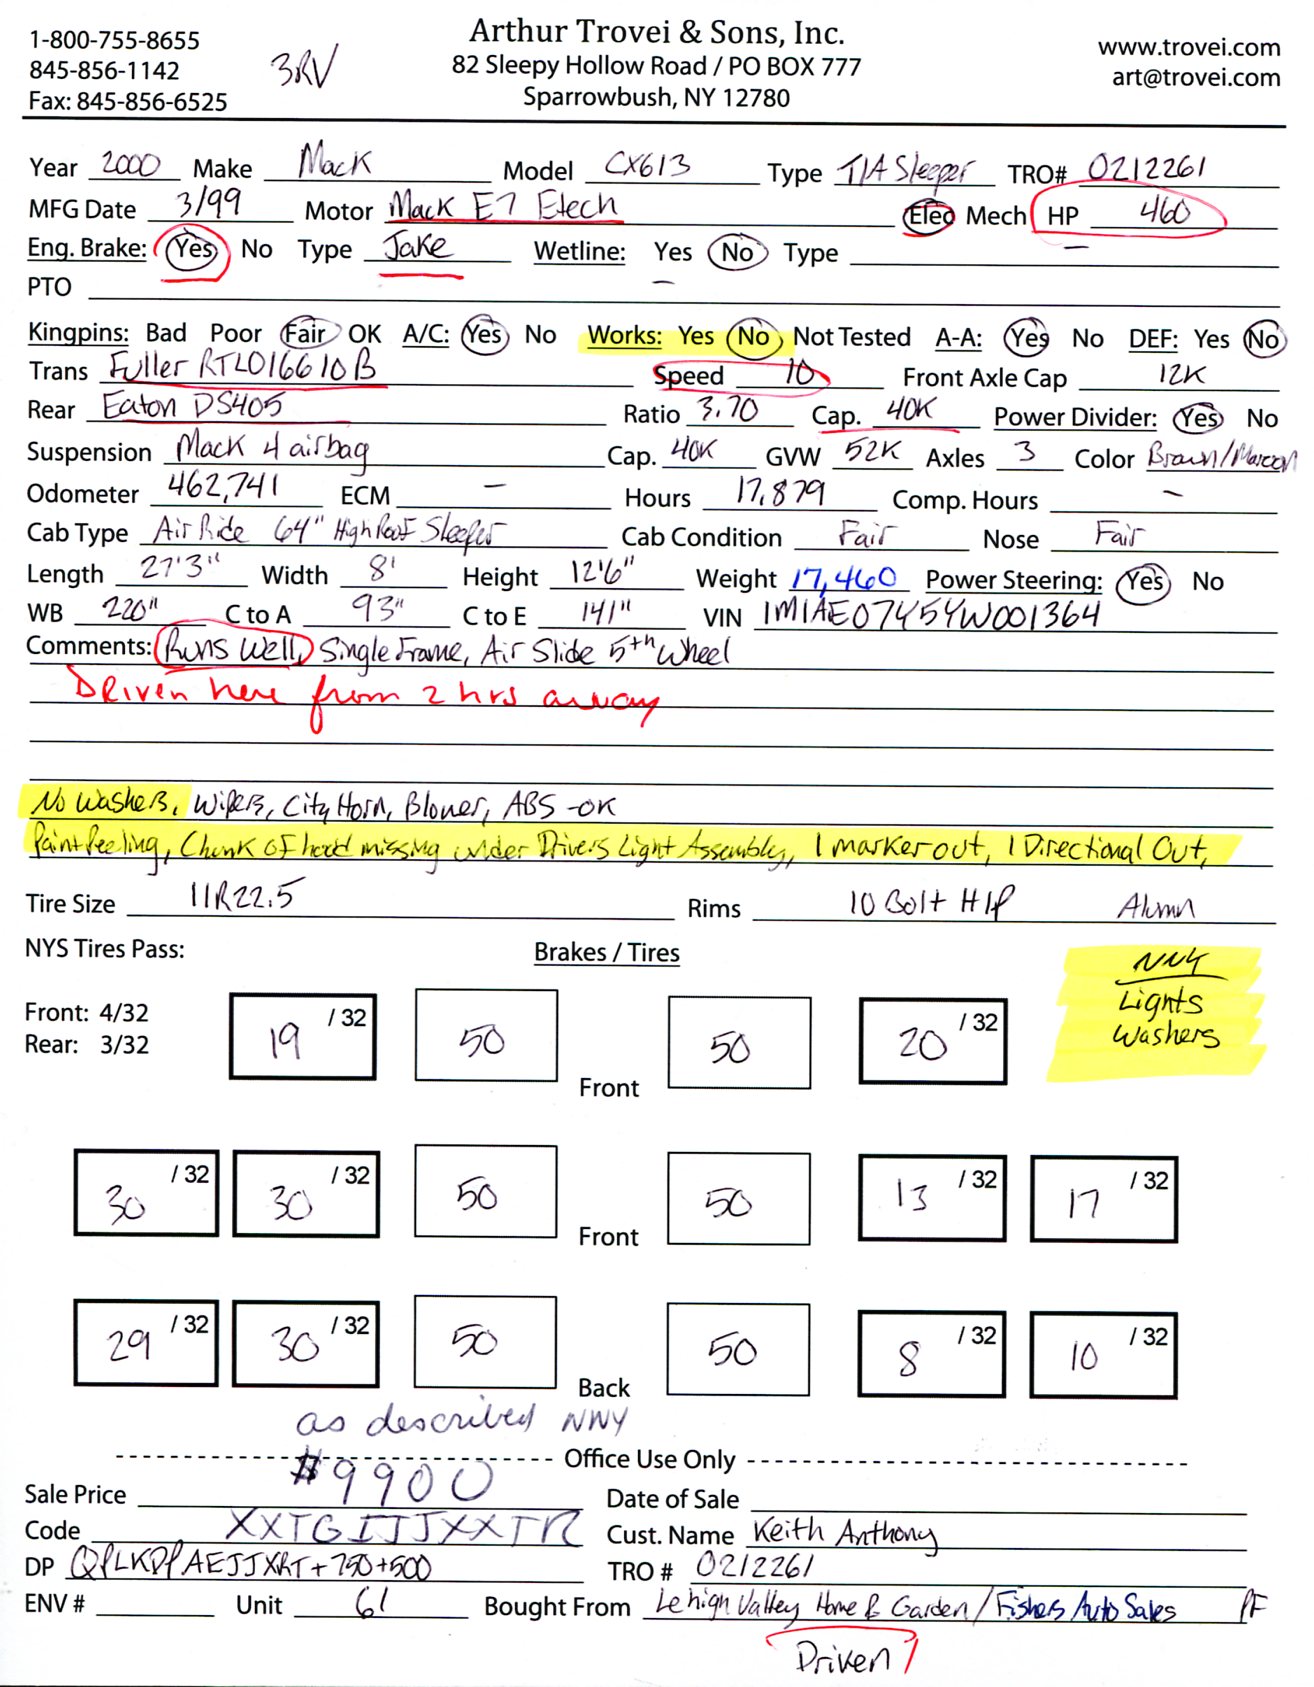 1-800-755-8655
845-856-1142
Fax: 845-856-6525
3RV
Arthur Trovei & Sons, Inc.
82 Sleepy Hollow Road / PO BOX 777
Sparrowbush, NY 12780
www.trovei.com
art@trovei.com
Year 2000 Make Mack Model CX613 Type T/A Sleeper TRO# 0212261
MFG Date 3/99 Motor Mack E7 Etech Elec Mech HP 460
Eng. Brake: Yes No Type Jake Wetline: Yes No Type
PTO
Kingpins: Bad Poor Fair OK A/C: Yes No Works: Yes No Not Tested A-A: Yes No DEF: Yes No
Trans Fuller RTLO16610B Speed 10 Front Axle Cap 12K
Rear Eaton DS405 Ratio 3.70 Cap. 40K Power Divider: Yes No
Suspension Mack 4 airbag Cap. 40K GVW 52K Axles 3 Color Brown/Maroon
Odometer 462,741 ECM — Hours 17,879 Comp. Hours —
Cab Type Air Ride 64" High Roof Sleeper Cab Condition Fair Nose Fair
Length 27'3" Width 8' Height 12'6" Weight 17,460 Power Steering: Yes No
WB 220" C to A 93" C to E 141" VIN 1M1AE07Y5YW001364
Comments: Runs Well, Single Frame, Air Slide 5th Wheel
Driven here from 2 hrs away
No Washers, Wipers, City Horn, Blower, ABS -OK
Paint Peeling, Chunk of hood missing under Drivers Light Assembly, 1 marker out, 1 Directional Out,
Tire Size 11R22.5 Rims 10 Bolt H/P Alumn
NYS Tires Pass: Brakes / Tires
NNY
Lights
Washers
Front: 4/32
Rear: 3/32
19 /32 50 Front 50 20 /32
30 /32 30 /32 50 Front 50 13 /32 17 /32
29 /32 30 /32 50 Back 50 8 /32 10 /32
as described NNY
Office Use Only
Sale Price $9900 Date of Sale
Code XXTGIJJXXTR Cust. Name Keith Anthony
DP QPLKDPAEJJXRT+750+500 TRO # 0212261
ENV # Unit 61 Bought From Lehigh Valley Home & Garden/Fishers Auto Sales PF
Driven